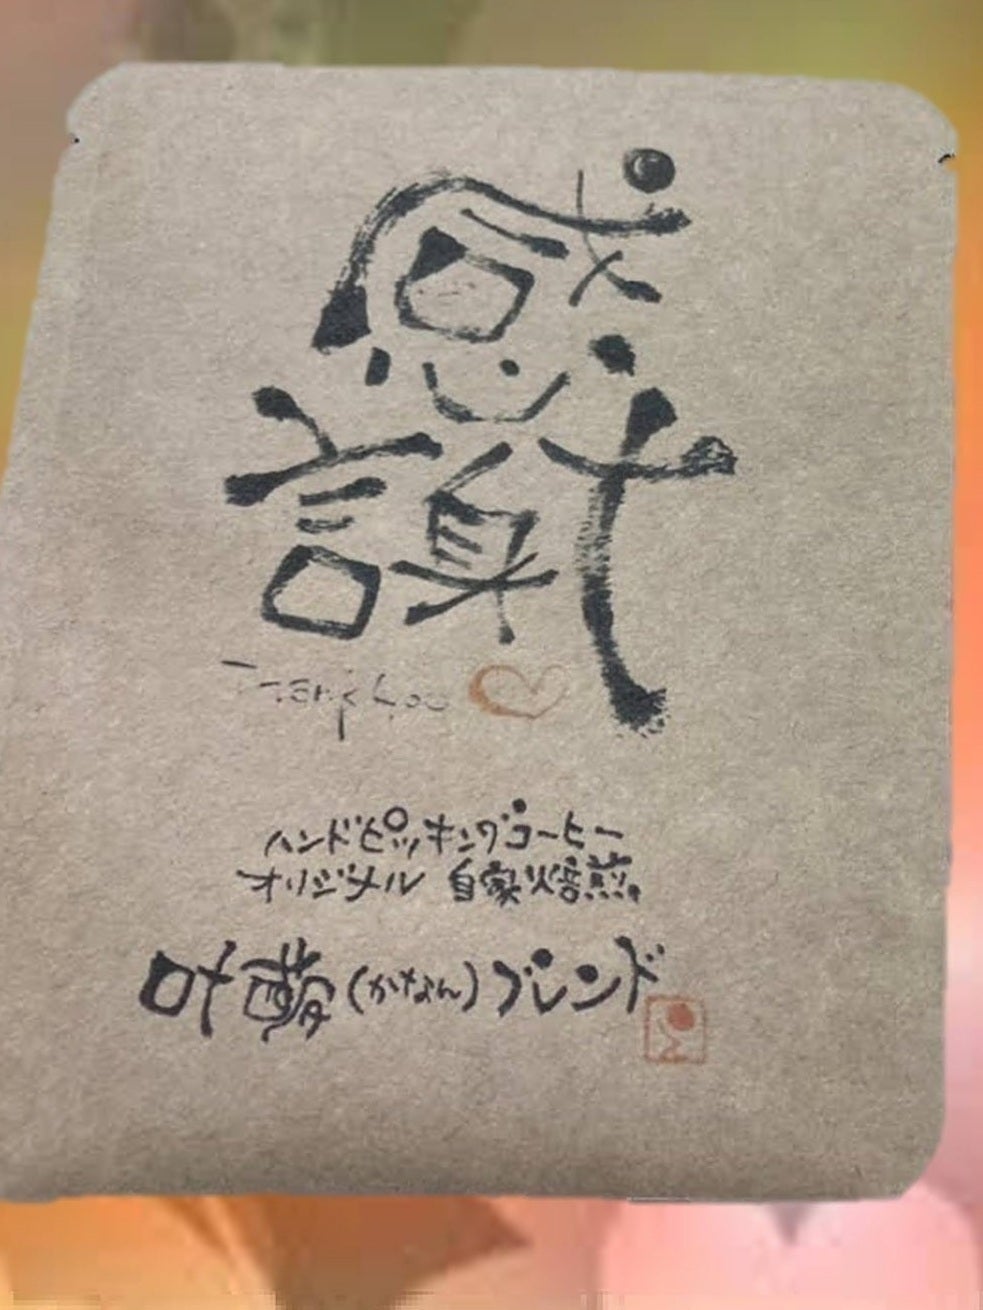 感
謝
Thank You
ハンドピッキングコーヒー
オリジナル 自家焙煎。
叶夢(かなん)ブレンド